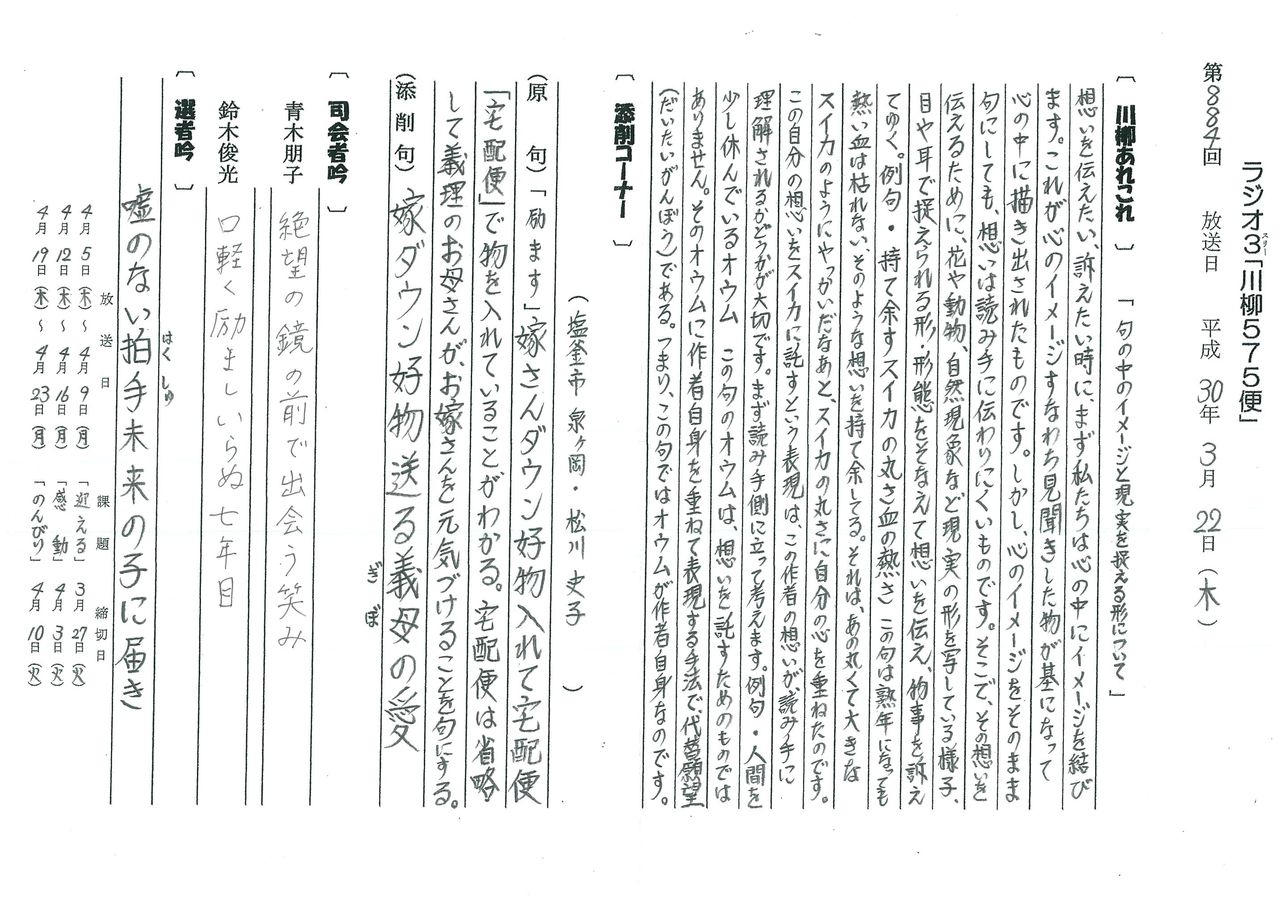 ラジオ3「川柳575便」
スリー
第884回　放送日　平成30年3月22日（木）
〔川柳あれこれ〕「句の中のイメージと現実を捉える形について」
想いを伝えたい、訴えたい時に、まず私たちは心の中にイメージを結び
ます。これが心のイメージすなわち見聞きした物が基になって
心の中に描き出されたものです。しかし、心のイメージをそのまま
句にしても、想いは読み手に伝わりにくいものです。そこで、その想いを
伝えるために、花や動物、自然現象など現実の形を写している様子、
目や耳で捉えられる形・形態をそなえて想いを伝え、物事を訴え
てゆく。例句・持て余すスイカの丸さ血の熱さ　この句は熟年になっても
熱い血は枯れない、そのような想いを持て余してる。それは、あの丸くて大きな
スイカのようにやっかいだなあと、スイカの丸さに自分の心を重ねたのです。
この自分の想いをスイカに託すという表現は、この作者の想いが、読み手に
理解されるかどうかが大切です。まず読み手側に立って考えます。例句・人間を
少し休んでいるオウム　この句のオウムは、想いを託すためのものでは
ありません。そのオウムに作者自身を重ねて表現する手法で、代替願望
（だいたいがんぼう）である。つまり、この句ではオウムが作者自身なのです。
〔添削コーナー〕
（塩釜市 泉ヶ岡・松川 史子）
（原句）「励ます」嫁さんダウン好物入れて宅配便
「宅配便」で物を入れていることがわかる。宅配便は省略
して義理のお母さんが、お嫁さんを元気づけることを句にする。
（添削句）嫁ダウン好物送る義母の愛
ぎぼ
〔司会者吟〕
青木朋子　絶望の鏡の前で出会う笑み
鈴木俊光　口軽く励ましいらぬ七年目
〔選者吟〕
嘘のない拍手未来の子に届き
はくしゅ
放送日　課題　締切日
4月5日（木）～4月9日（月）「迎える」3月27日（火）
4月12日（木）～4月16日（月）「感動」4月3日（火）
4月19日（木）～4月23日（月）「のんびり」4月10日（火）